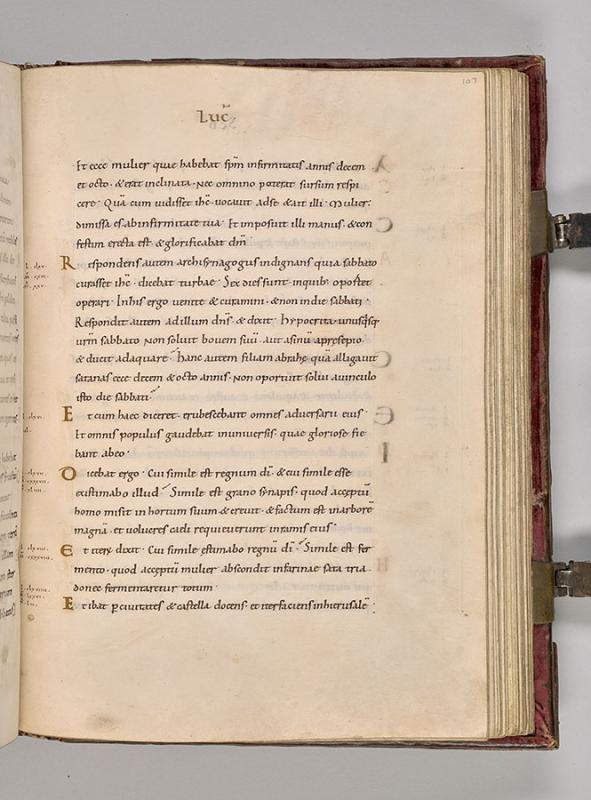 107
Luc̄
Et ecce mulier quae habebat sp̄m infirmitatis annis decem
et octo · & erat inclinata · Nec omnino poterat sursum respi
cere · Quā cum vidisset ih̄c · vocavit ad se & ait illi · Mulier·
dimissa es ab infirmitate tua · Et imposuit illi manus · & con
festim erecta est · & glorificabat dm̄
Respondens autem archisynagogus indignans quia sabbato
curasset ih̄c · dicebat turbae · Sex dies sunt · inquit · oportet
operari · In his ergo venite & curamini · & non in die sabbati ·
Respondit autem ad illum dn̄s · & dixit · Hypocritae unusq̄sq
ur̄m sabbato Non soluit bovem suū · aut asinū a presepio ·
& ducit adaquare · Hanc autem filiam abrahę quā alligavit
satanas ecce decem & octo annis · Non oportuit solui a vinculo
isto die sabbati ·
Et cum haec diceret · erubescebant omnes adversarii eius ·
Et omnis populus gaudebat in universis · quae gloriose fie
bant ab eo ·
Dicebat ergo · Cui simile est regnum dī · & cui simile esse
existimabo illud · Simile est grano synapis · quod acceptū
homo misit in hortum suum · & crevit · & factum est in arborē
magnā · et volucres caeli requieverunt in ramis eius ·
Et iterū dixit · Cui simile estimabo regnū dī · Simile est fer
mento · quod acceptū mulier abscondit in farinae sata tria
donec fermentaretur totum ·
Et ibat p civitates & castella docens · et iter faciens in hierusalē ·